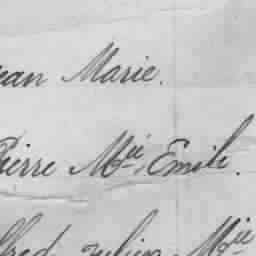 ean Marie.
Pierre Mie, Emile.
lfred Julien Mie